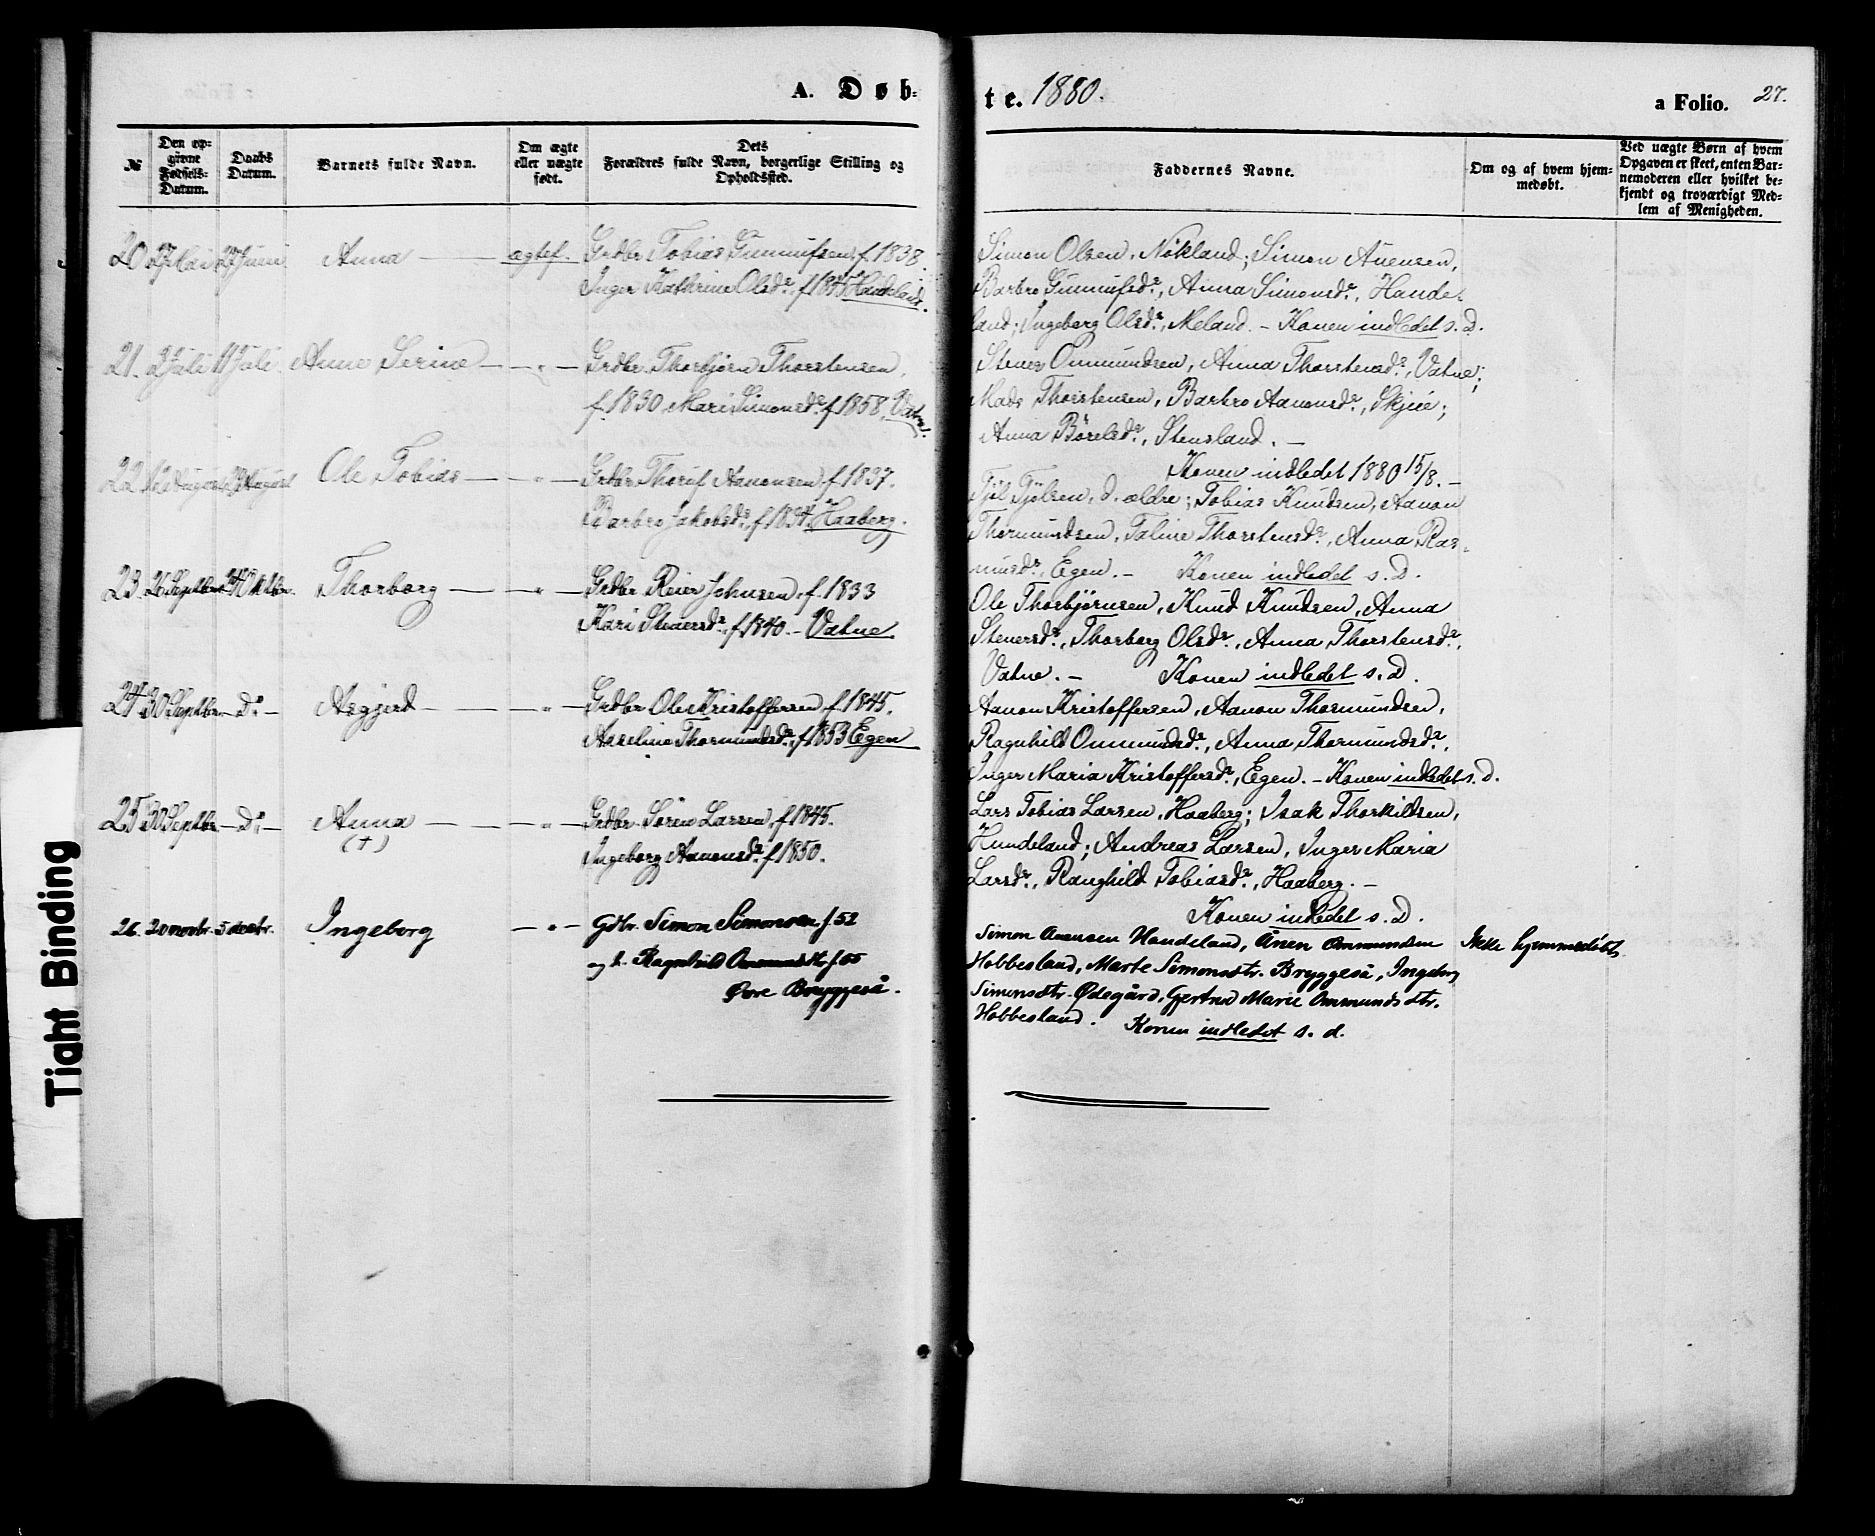 A. Døb-
te. 1880.
a Folio. 27.
№
Den op-
givne
Fødsels-
Datum.
Daabs
Datum.
Barnets fulde Navn.
Om ægte
eller uægte
født.
Dets
Forældres fulde Navn, borgerlige Stilling og
Opholdssted.
Faddernes Navne.
Om og af hvem hjem-
medøbt.
Ved uægte Børn af hvem
Opgaven er skeet, enten Bar-
nemoderen eller hvilket be-
kjendt og troværdigt Med-
lem af Menigheden.
20 27 Mai 27 Juni Anna — ægtef. Grdbr Tobias Gunnufsen f. 1838.
Inger Kathrine Olsdr. f. 1845 Handeland.
Simon Olsen, Nökland; Simon Auensen,
Barbro Gunnufsdr., Anna Simonsdr., Hande-
land; Ingeborg Olsdr., Meland. – Konen indledet s. D.
21. 2 Juli 11 Juli Anne Serine — " — Grdbr. Thorbjørn Thorstensen,
f. 1850, Mari Simonsdr. f. 1858, Vatne.
Stener Ommundsen, Anna Thorstensdr., Vatne;
Mads Thorstensen, Barbro Aanonsdr., Skjeie;
Anna Børelsdr., Stensland. –
Konen indledet 1880 15/8. –
22 August 29 August Ole Tobias — " — Grdbr. Aanonsen f. 1837.
Barbro Jakobsdr., f. 1834, Haaberg.
Fjøl Fjølsen, d. ældre; Tobias Knudsen, Aanon
Thormundsen, Taline Thorstensdr., Anna Ras-
musdr., Egen. – Konen indledet s. D.
23. 26 Septbr. Oktbr. Thorborg — " — Grdbr Reier Johnsen, f. 1833
Kari Stenersdr., f. 1840. – Vatne.
Ole Thorbjørnsen, Knud Knudsen, Anna
Stenersdr., Thorborg Olsdr., Anna Thorstensdr.,
Vatne. – Konen indledet s. D.
24 30 Septbr. – Do. – Asgjerd — " — Grdbr Ole Kristoffersen f. 1845.
Aaseline Thormundsdr., f. 1853 Egen
Aanon Kristoffersen, Aanon Thormundsen,
Ragnhild Ommundsdr., Anna Thormundsdr.,
Inger Maria Kristoffersdr., Egen. – Konen indledet s. D.
25 30 Septbr. – Do. – Anna — " — Grdbr. Søren Larsen, f. 1845.
(†) Ingeborg Aanonsdr. f. 1850.
Lars Tobias Larsen, Haaberg; Isak Thorkildsen,
Hundeland; Andreas Larsen, Inger Maria
Larsdr., Ranghild Tobiasdr., Haaberg. –
Konen indledet s. D.
26. 20 novbr. 5 decbr. Ingeborg — " — Gdbr. Simon Simonsen f. 52
og h. Ragnhild Ommundsdtr. f. 55
Øvre Bryggeså.
Simon Handeland, Ånen Ommundsen
Hobbesland, Marte Simonsdtr. Bryggeså, Ingeborg
Simonsdtr. Ødegård, Gjertrud Marie Ommundsdtr.
Hobbesland. Konen indledet s. d.
Ikke hjemmedøbt
Tight Binding